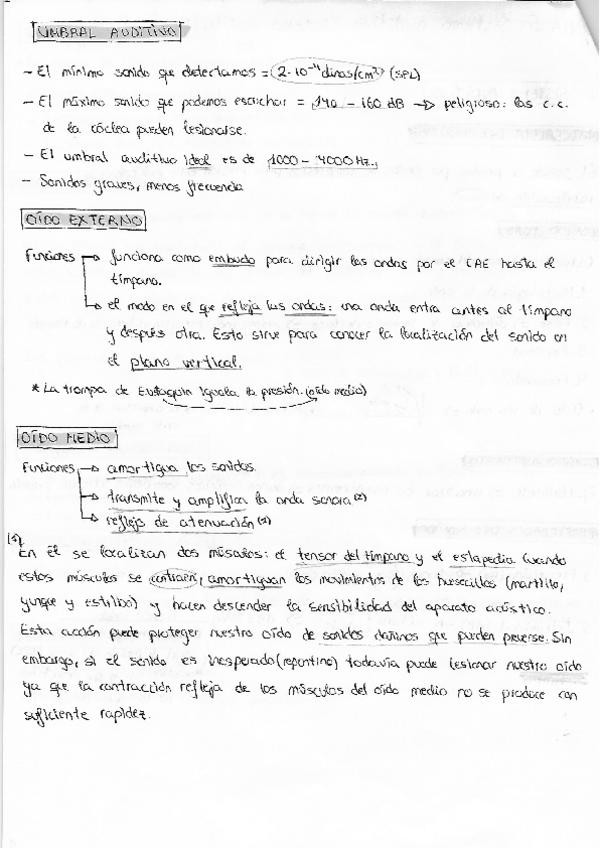 UMBRAL AUDITIVO
- El mínimo sonido que detectamos = 2·10⁻⁴ dinas/cm² (SPL)
- El máximo sonido que podemos escuchar = 140 - 160 dB → peligroso: las c.c.
de la cóclea pueden lesionarse.
- El umbral auditivo ideal es de 1000 - 4000 Hz.
- Sonidos graves, menos frecuencia
OÍDO EXTERNO
Funciones → funciona como embudo para dirigir las ondas por el CAE hasta el
tímpano.
→ el modo en el que refleja las ondas: una onda entra antes al tímpano
y después otra. Esto sirve para conocer la localización del sonido en
el plano vertical.
* La trompa de Eustaquio iguala la presión. (oído medio)
OÍDO MEDIO
Funciones → amortigua los sonidos.
→ transmite y amplifica la onda sonora (2)
→ reflejo de atenuación (1)
(1)
En él se localizan dos músculos: el tensor del tímpano y el estapedio. Cuando
estos músculos se contraen, amortiguan los movimientos de los huesecillos (martillo,
yunque y estribo) y hacen descender la sensibilidad del aparato acústico.
Esta acción puede proteger nuestro oído de sonidos dañinos que pueden preverse. Sin
embargo, si el sonido es inesperado (repentino) todavía puede lesionar nuestro oído
ya que la contracción refleja de los músculos del oído medio no se produce con
suficiente rapidez.